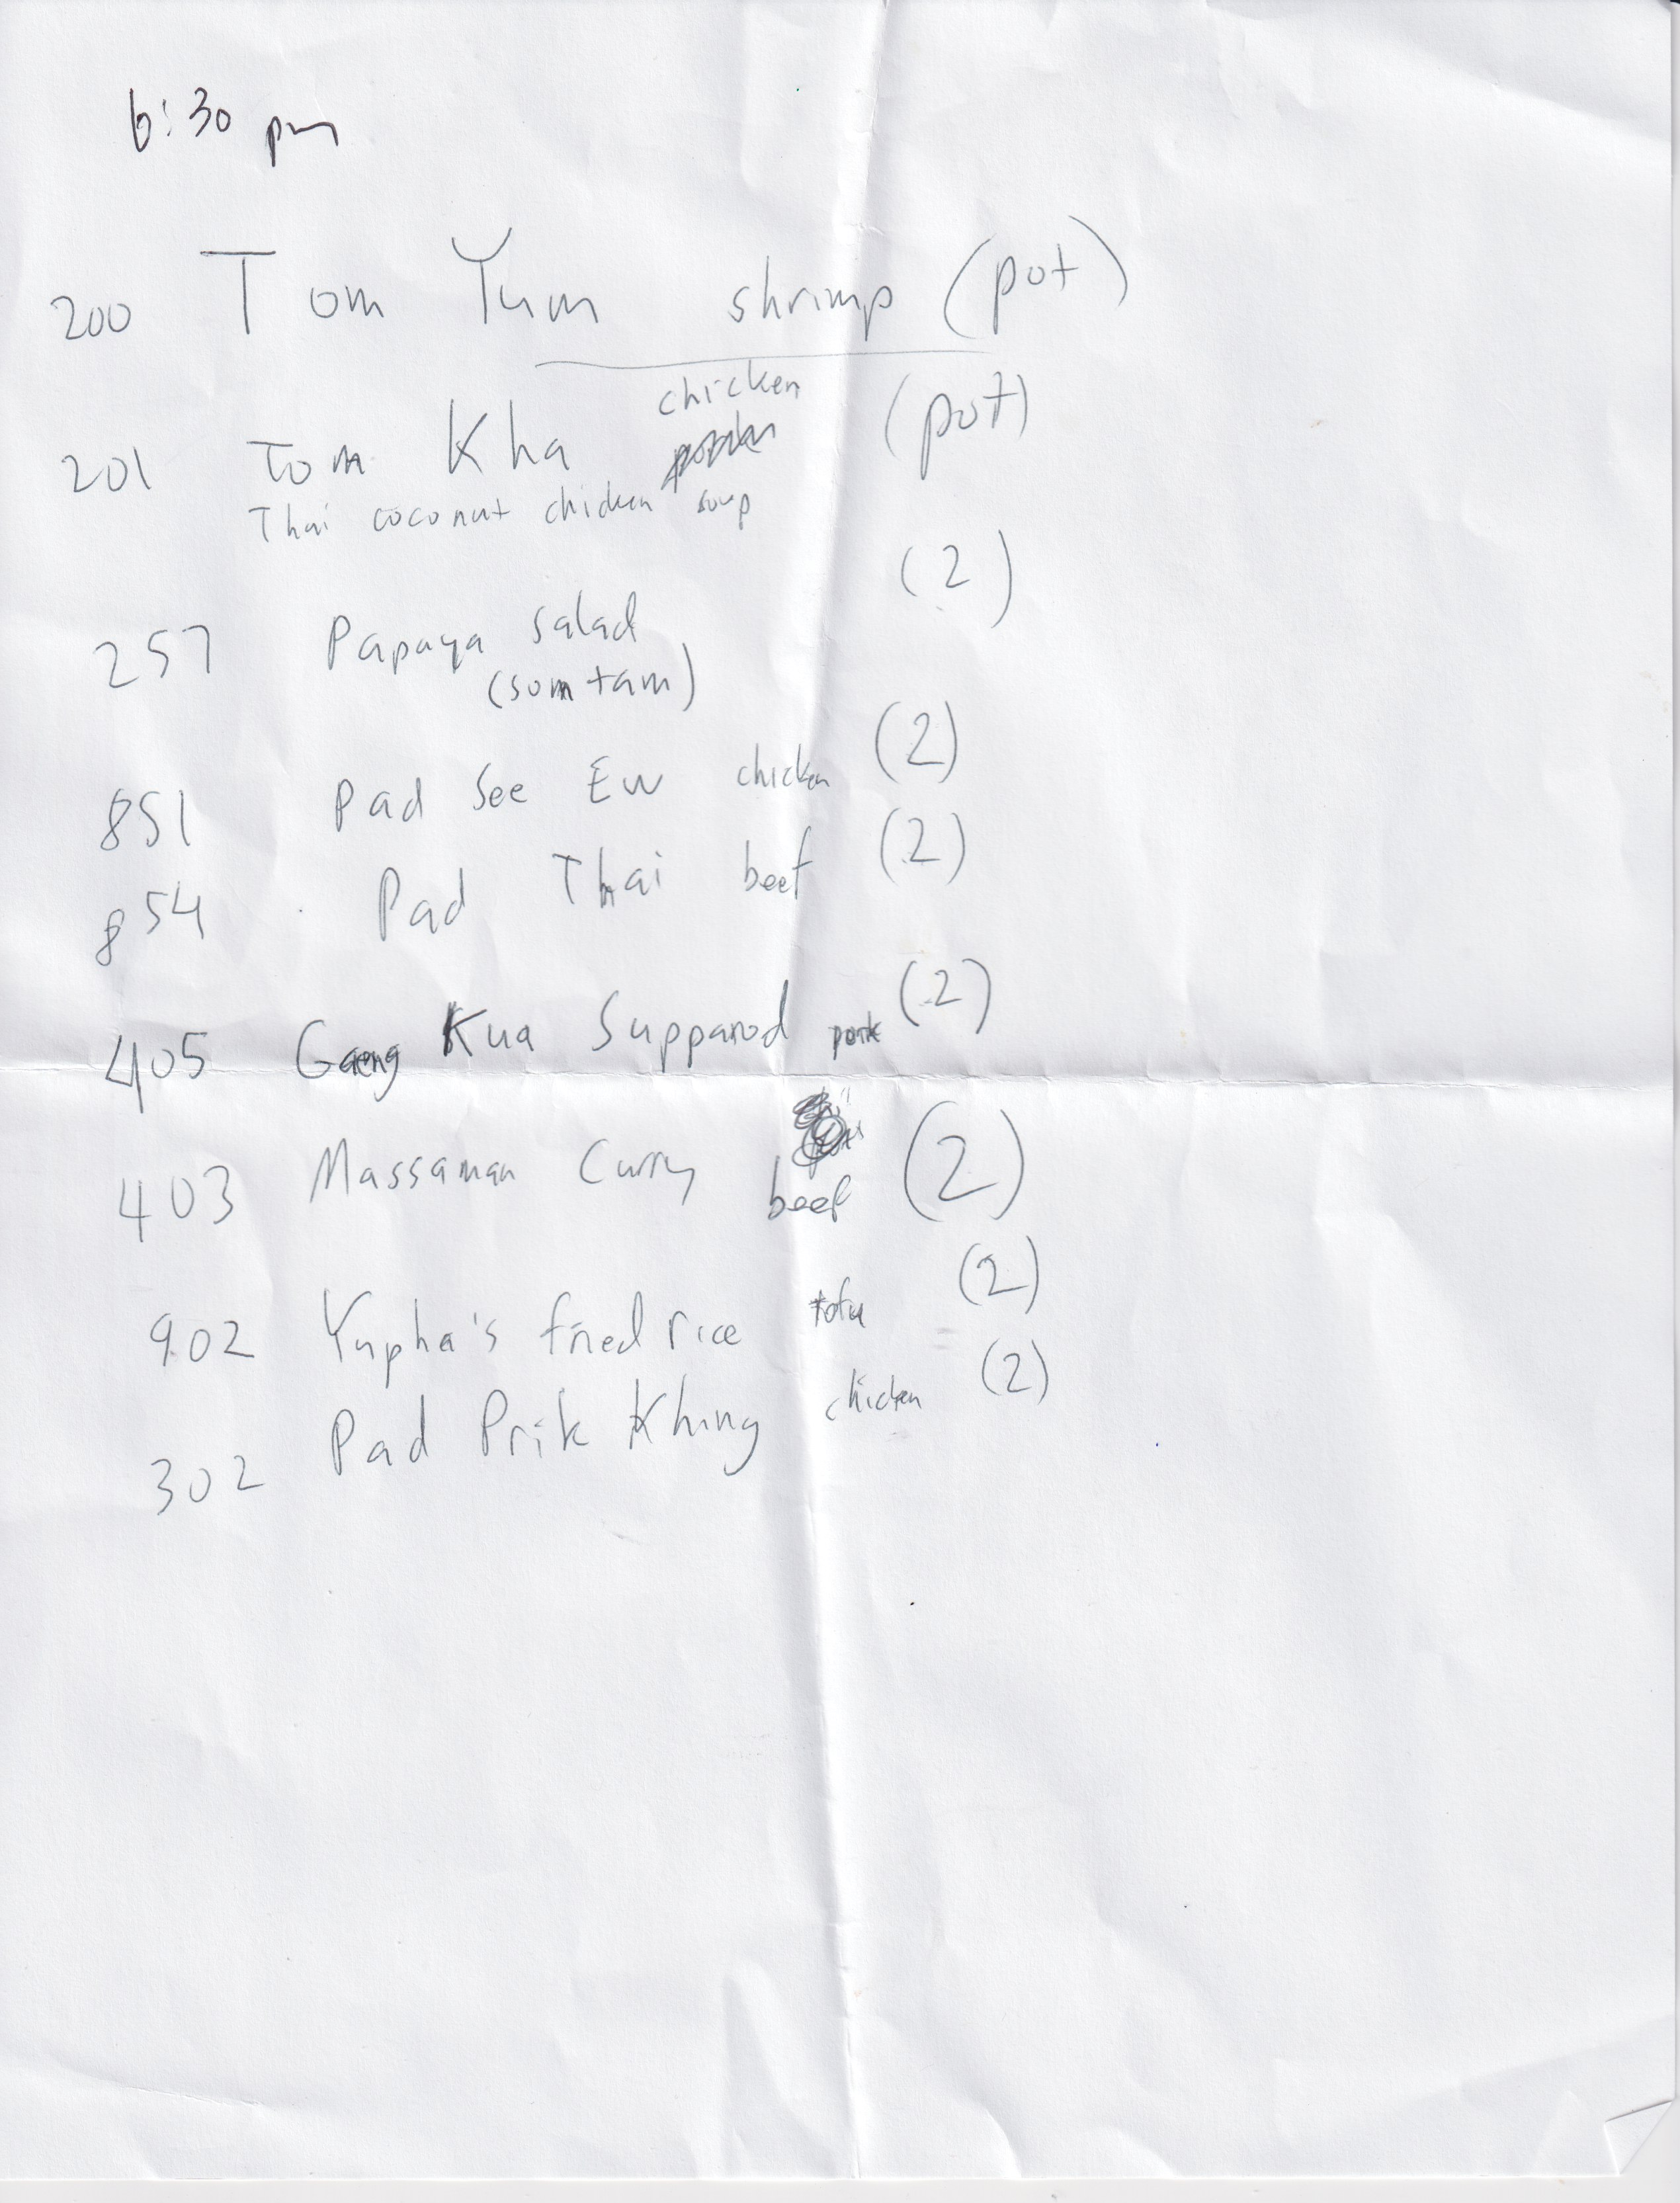 6:30 pm
200 Tom Yum shrimp (pot)
chicken
201 Tom Kha (pot)
Thai coconut chicken soup
257 Papaya salad (2)
(som tam)
851 Pad See Ew chicken (2)
854 Pad Thai beef (2)
405 Gaeng Kua Supparod pork (2)
403 Massaman Curry beef (2)
902 Yupha's fried rice tofu (2)
302 Pad Prik Khing chicken (2)